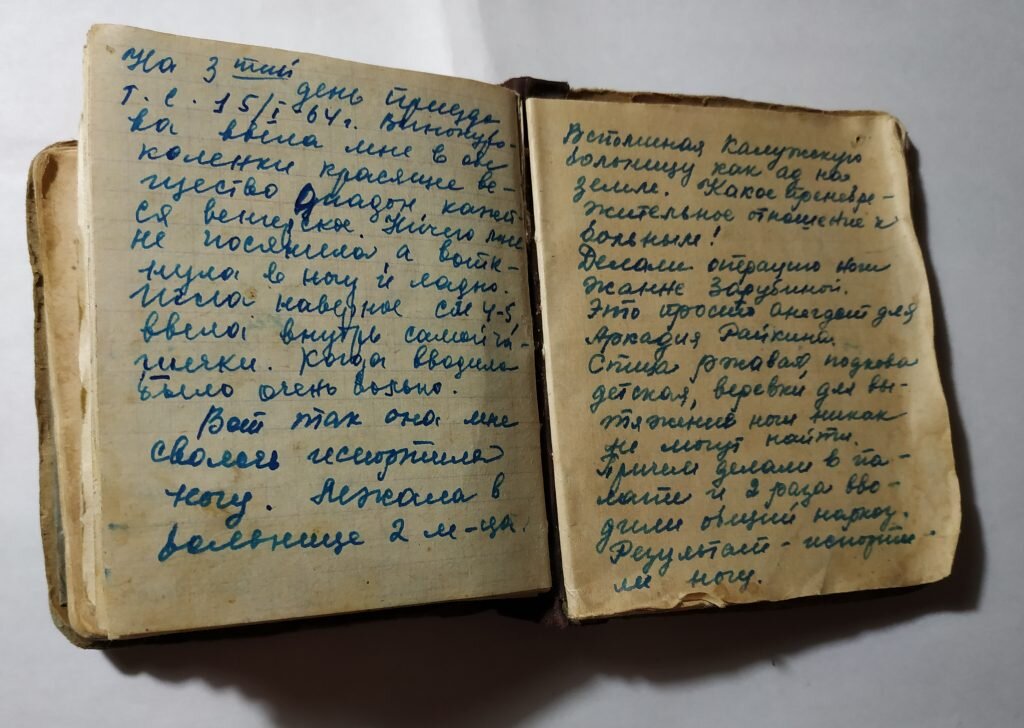 На 3 тий день приезда
т.е. 15/I 64г. Винокуро-
ва ввела мне в
коленки красящие ве-
щество кажет-
ся венгерское. Ничего мне
не пояснила а вотк-
нула в ногу и ладно.
Игла наверное см 4-5
ввела внутрь самой ча-
шечки. Когда вводила
было очень больно.
Вот так она мне
сволочь испортила
ногу. Лежала в
больнице 2 м-ца.
Вспоминая Калужскую
больницу как ад на
земле. Какое пренебре-
жительное отношение к
больным!
Делали операцию ноги
Жанне Зарубиной.
Это просто анекдот для
Аркадия Райкина.
Спица ржавая, подкова
детская, веревки для вы-
тяжения ноги никак
не могут найти.
Причем делали в па-
лате и 2 раза вво-
дили общий наркоз.
Результат - испорти-
ли ногу.